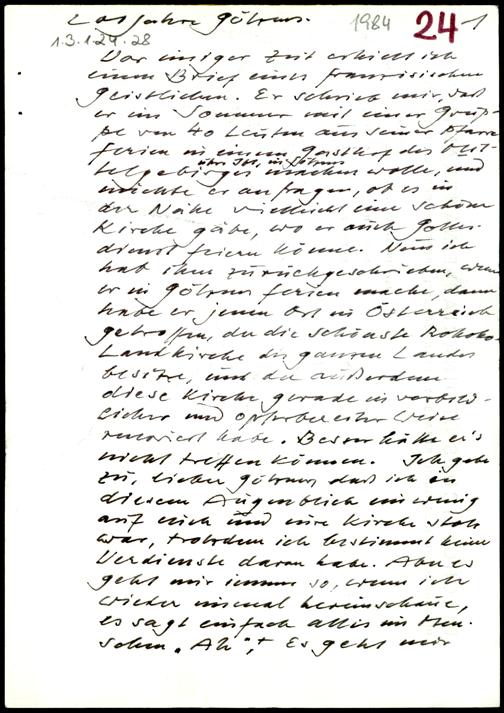 200 Jahre Götzens. 1984 24 1
13.1.24.28
Vor einiger Zeit erhielt ich
einen Brief eines französischen
Geistlichen. Er schrieb mir, daß
er im Sommer mit einer Grup-
pe von 40 Leuten aus seiner Pfarre
Ferien in einem Gasthof des Mit-
über Ibk, in Götzens
telgebirges machen wolle, und
möchte er anfragen, ob es in
der Nähe vielleicht eine schöne
Kirche gäbe, wo er auch Gottes-
dienst feiern könne. Nun ich
hab ihm zurückgeschrieben, wenn
er in Götzens Ferien mache, dann
habe er jenen Ort in Österreich
getroffen, der die schönste Rokoko-
Landkirche des ganzen Landes
besitze, und der außerdem
diese Kirche gerade in vorbild-
licher und opferbereiter Weise
renoviert habe. Besser hätte er's
nicht treffen können. Ich gebe
zu, liebe Götzner, daß ich in
diesem Augenblick ein wenig
auf euch und eure Kirche stolz
war, trotzdem ich bestimmt keine
Verdienste daran habe. Aber es
geht mir immer so, wenn ich
wieder einmal hereinschaue,
es sagt einfach alles im Men-
schen „Ah", + Es geht mir